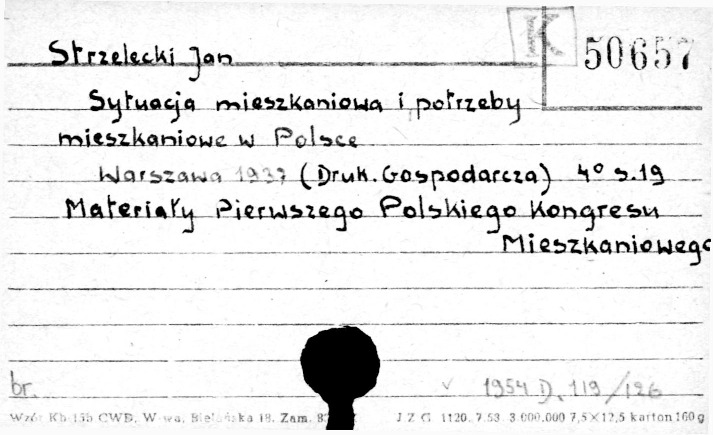 K 50657
Strzelecki Jan
Sytuacja mieszkaniowa i potrzeby
mieszkaniowe w Polsce
Warszawa 1937 (Druk. Gospodarcza) 4° s.19
Materiały Pierwszego Polskiego Kongresu
Mieszkaniowego
br.
v 1954 D. 119/126
Wzór Kb-15b CWD, W-wa, Bielańska 18. Zam. J Z G 1120. 7.53. 3.000.000 7,5×12,5 karton 160 g